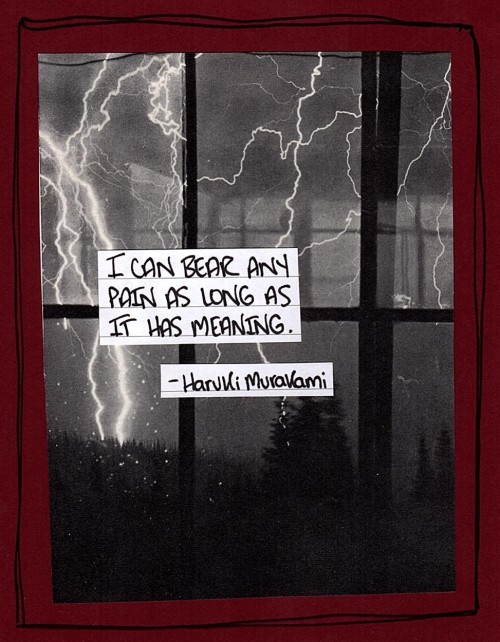 I CAN BEAR ANY
PAIN AS LONG AS
IT HAS MEANING.
-HARUKi MURAKAMi